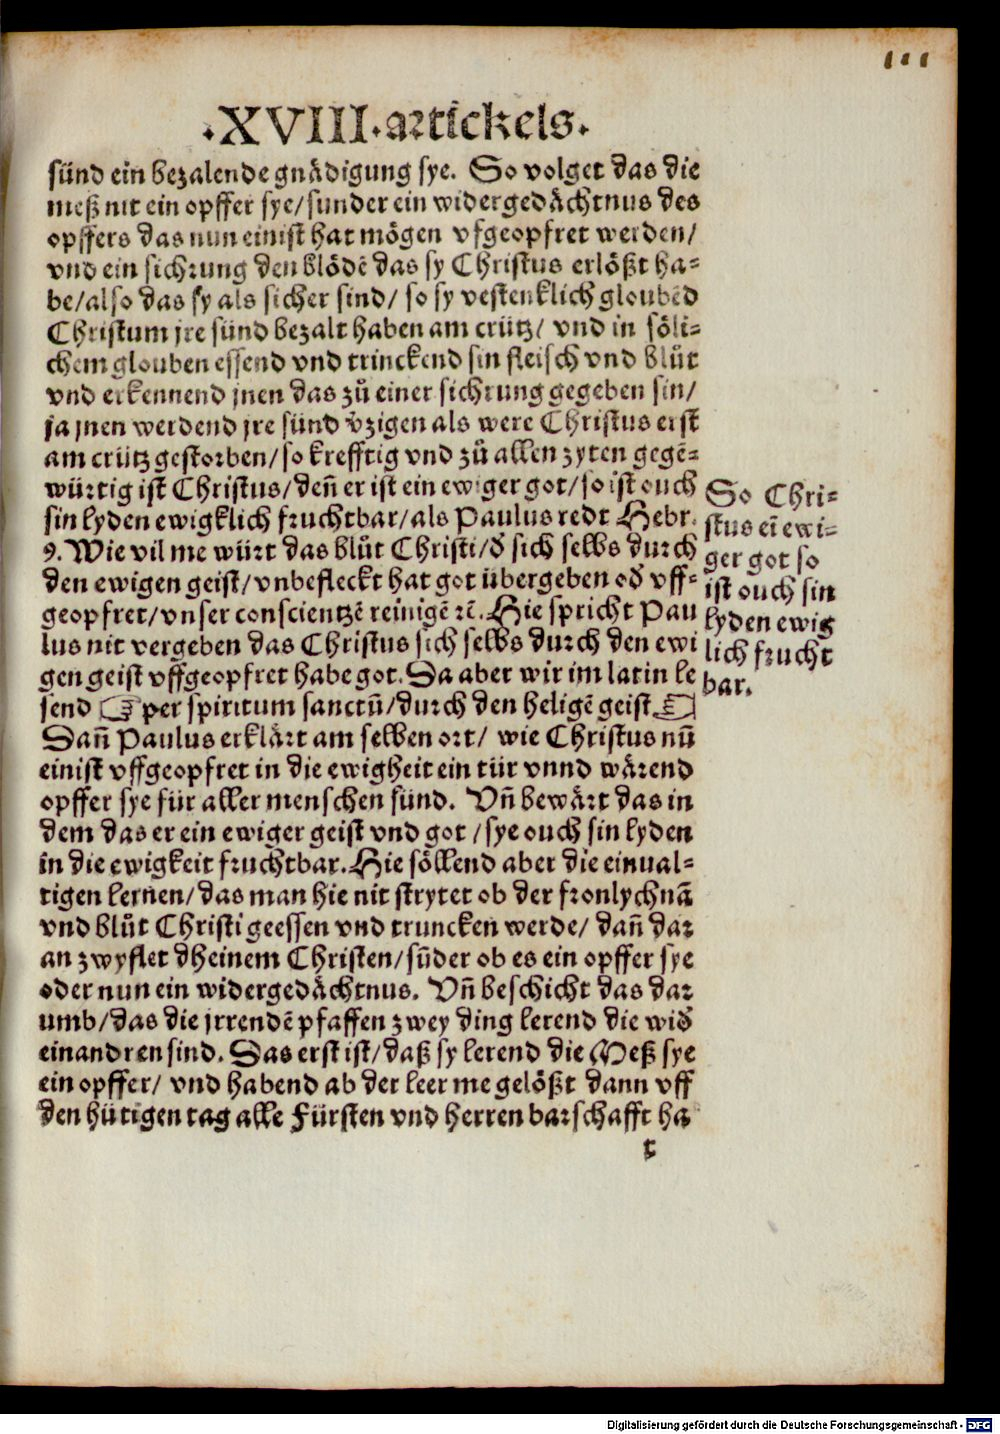 ·XVIII·artickels·
sünd ein bezalende gnådigung sye. So volget das die
meß nit ein opffer sye/sunder ein widergedåchtnus des
opffers das nun einist hat mögen vfgeopfret werden/
vnd ein sichrung den blödē das sy Christus erlößt ha-
be/also das sy als sicher sind/ so sy vestenklich gloubēd
Christum jre sünd bezalt haben am crütz/ vnd in söli-
chem glouben essend vnd trinckend sin fleisch vnd blůt
vnd erkennend jnen das zů einer sichrung gegeben sin/
ja jnen werdend jre sünd v̄zigen als were Christus erst
am crütz gestorben/so krefftig vnd zů allen zyten gegē-
würtig ist Christus/deñ er ist ein ewiger got/so ist ouch
sin lyden ewigklich fruchtbar/als Paulus redt Hebr.
9. Wie vil me würt das blůt Christi/d̄ sich selbs durch
den ewigen geist/vnbefleckt hat got übergeben od̄ vff-
geopfret/vnser conscientzē reinigē ꝛc̄. Hie spricht Pau
lus nit vergeben das Christus sich selbs durch den ewi
gen geist vffgeopfret habe got. Da aber wir im latin le
send ☞ per spiritum sanctū/durch den heligē geist ☜
Dañ Paulus erklårt am selben ort/ wie Christus nū
einist vffgeopfret in die ewigheit ein tür vnnd wårend
opffer sye für aller menschen sünd. Vñ bewårt das in
dem das er ein ewiger geist vnd got /sye ouch sin lyden
in die ewigkeit fruchtbar. Hie söllend aber die einual-
tigen lernen/das man hie nit strytet ob der fronlychnā
vnd blůt Christi geessen vnd truncken werde/ dañ dar
an zwyflet dheinem Christen/sūder ob es ein opffer sye
oder nun ein widergedåchtnus. Vñ beschicht das dar
umb/das die jrrendē pfaffen zwey ding lerend die wid̄
einandren sind. Das erst ist/daß sy lerend die Meß sye
ein opffer/ vnd habend ab der leer me gelößt dann vff
den hütigen tag alle Fürsten vnd herren barschafft ha
t
So Chri-
stus eī ewi-
ger got so
ist ouch sin
lyden ewig
lich frucht
bar.
Digitalisierung gefördert durch die Deutsche Forschungsgemeinschaft - DFG